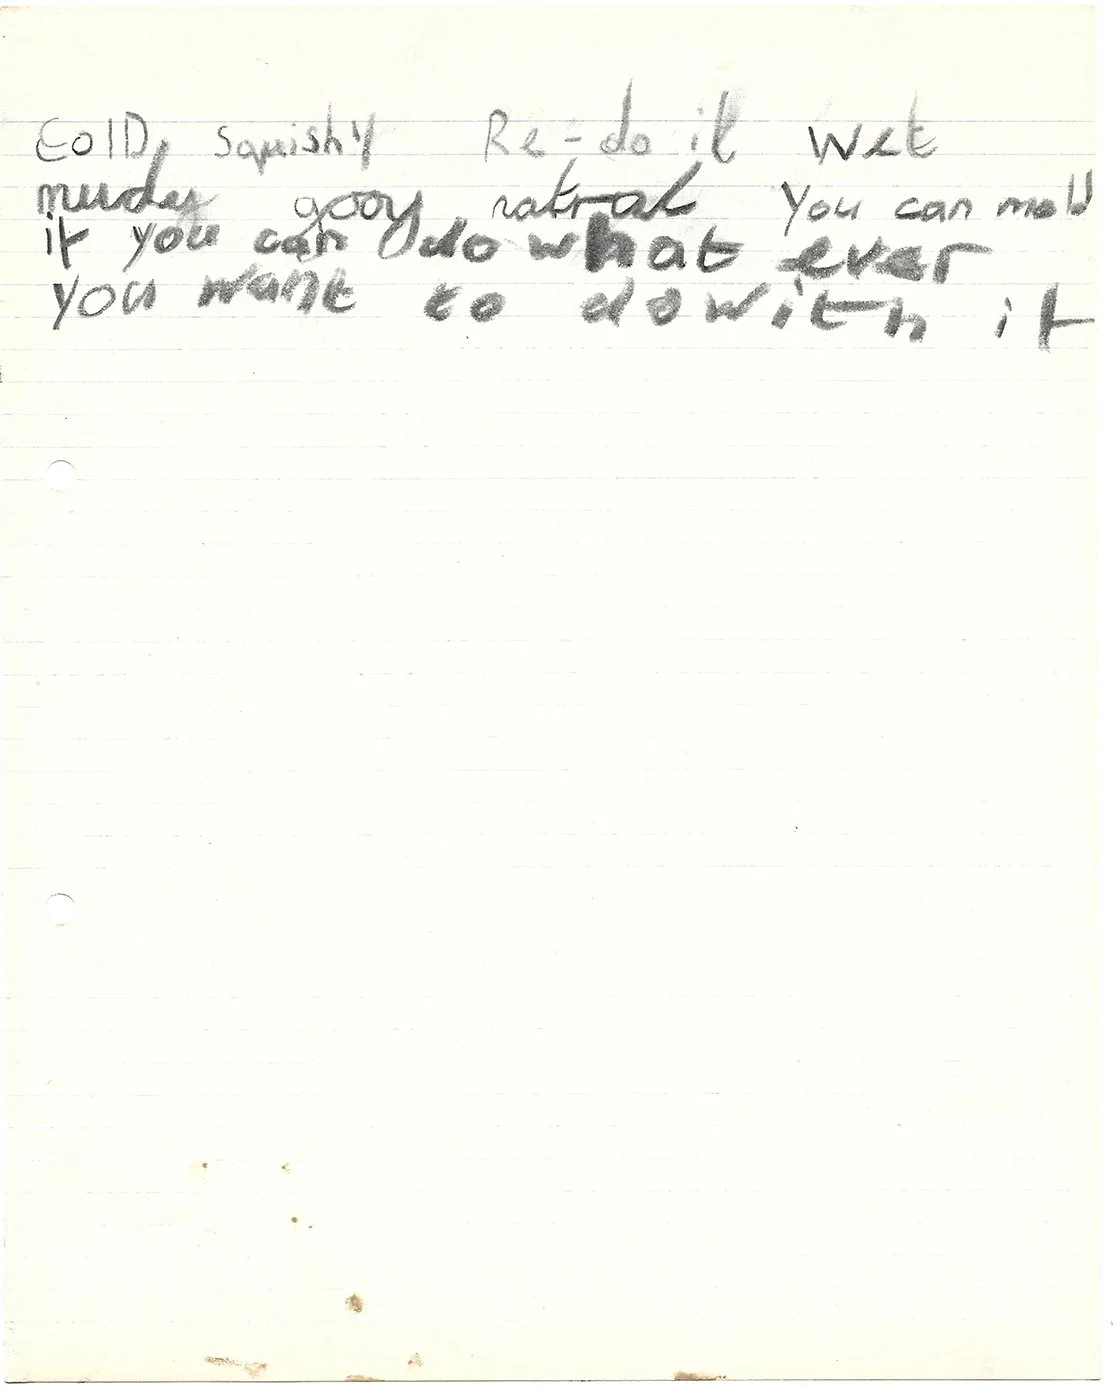 Cold, squishy Re-do it wet
muday gooy, natral you can mold
it you can do what ever
you want to do with it